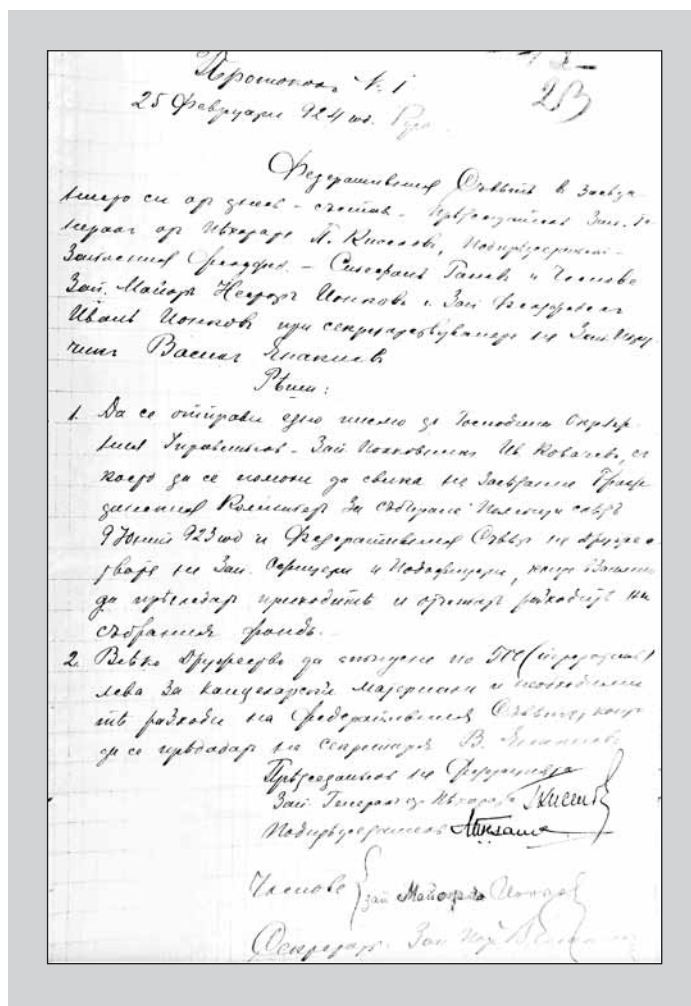 Протоколъ № 1
253
25 Февруари 924 год. Русе
Федеративния Съветъ в заседа-
нието си от днес - съставъ - Председателя Зап. Ге-
нерал от Пехотата П. Киселовъ, Подпредседателя -
Запасния - Симеонъ Ганев и Членове
Зап. Майоръ Йонковъ и Зап.
Иванъ Йонковъ при секретарствуването на Зап. Пору-
чикъ Василъ Янакиевъ
Реши:
1. Да се отправи едно писмо до Господина Окръж-
ния Управитель - Зап. Полковникъ Ив Ковачевъ, с
което да се помоли да свика на Заседание Граж-
данския Комитетъ За събиране Помощи следъ
9 Юний 923 год и Федеративния Съветъ на Друже-
ствата на Зап. Офицери и Подофицери, които
да прегледатъ приходите и отчетатъ разходите на
събрания фондъ.
2. Всеко Дружество да отпусне по
лева За канцеларски материали и необходими
те разходи на Федеративния Съветъ, които
да се предадат на Секретаря В. Янакиевъ
Председателъ на Федерацията
Зап. Генерал от Пехотата Киселовъ
Подпредседателъ
Членове { зап Майоръ Йонковъ
Секретаръ: Зап Пор В.